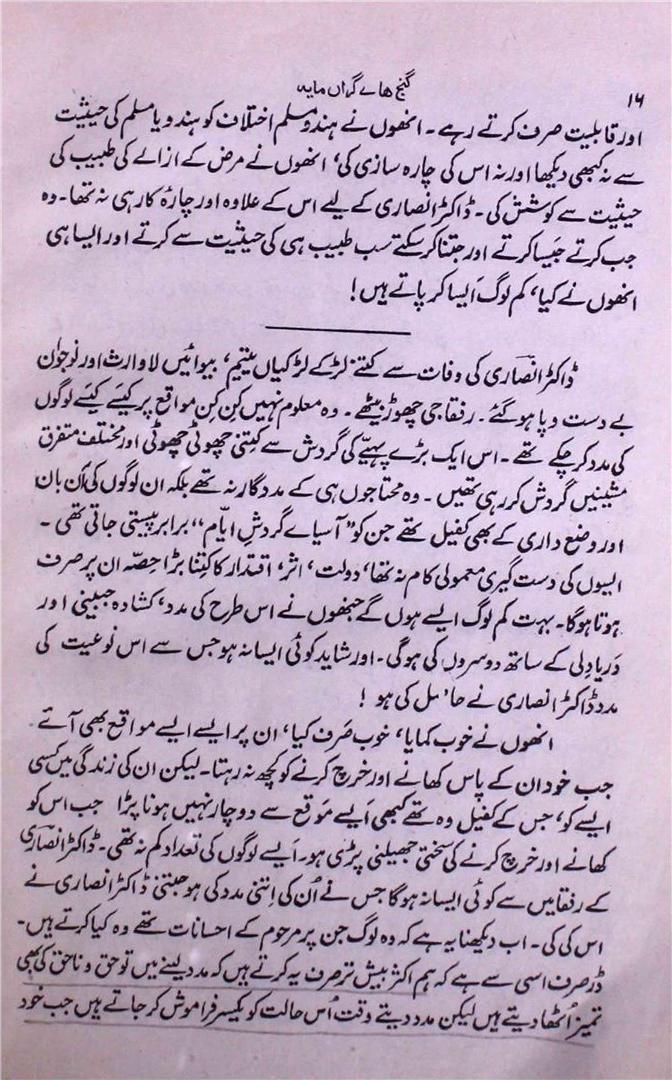 ۱۶
گنج ھائے گراں مایہ
اور قابلیت صرف کرتے رہے۔ انھوں نے ہندو مسلم اختلاف کو ہندو یا مسلم کی حیثیت
سے نہ کبھی دیکھا اور نہ اس کی چارہ سازی کی، انھوں نے مرض کے ازالے کی طبیب کی
حیثیت سے کوشش کی۔ ڈاکٹر انصاری کے لیے اس کے علاوہ اور چارۂ کار ہی نہ تھا۔ وہ
جب کرتے جیسا کرتے اور جتنا کر سکتے سب طبیب ہی کی حیثیت سے کرتے اور ایسا ہی
انھوں نے کیا، کم لوگ ایسا کر پاتے ہیں!
ڈاکٹر انصاری کی وفات سے کتنے لڑکے لڑکیاں یتیم، بیوائیں لاوارث اور نوجوان
بے دست و پا ہو گئے۔ رفقا جی چھوڑ بیٹھے۔ وہ معلوم نہیں کِن کِن مواقع پر کیسے کیسے لوگوں
کی مدد کر چکے تھے۔ اس ایک بڑے پہیّے کی گردش سے کتِنی چھوٹی چھوٹی اور مختلف متفرق
مشینیں گردش کر رہی تھیں۔ وہ محتاجوں ہی کے مددگار نہ تھے بلکہ ان لوگوں کی اُن بان
اور وضع داری کے بھی کفیل تھے جن کو "آسیاے گردشِ ایّام" برابر پیستی جاتی تھی۔
ایسوں کی دست گیری معمولی کام نہ تھا، دولت، اثر، اقتدار کا کِتنا بڑا حِصّہ ان پر صرف
ہوتا ہوگا۔ بہت کم لوگ ایسے ہوں گے جنھوں نے اس طرح کی مدد، کشادہ جبینی اور
دَریا دِلی کے ساتھ دوسروں کی ہوگی۔ اور شاید کوئی ایسا نہ ہو جس سے اس نوعیت کی
مدد ڈاکٹر انصاری نے حاصل کی ہو!
انھوں نے خوب کمایا، خوب صَرف کیا، ان پر ایسے ایسے مواقع بھی آتے
جب خود ان کے پاس کھانے اور خرچ کرنے کو کچھ نہ رہتا۔ لیکن ان کی زندگی میں کسی
ایسے کو، جس کے کفیل وہ تھے کبھی اَیسے مَوقع سے دوچار نہیں ہونا پڑا جب اس کو
کھانے اور خرچ کرنے کی سختی جھیلنی پڑی ہو۔ اَیسے لوگوں کی تعداد کم نہ تھی۔ ڈاکٹر انصاری
کے رفقا میں سے کوئی ایسا نہ ہوگا جس نے اُن کی اِتنی مدد کی ہو جتنی ڈاکٹر انصاری نے
اس کی کی۔ اب دیکھنا یہ ہے کہ وہ لوگ جن پر مرحوم کے احسانات تھے وہ کیا کرتے ہیں۔
ڈر صرف اسی سے ہے کہ ہم اکثر بیش تر صرف یہ کرتے ہیں کہ مدد لینے میں تو حق و ناحق کی بھی
تمیز اُٹھا دیتے ہیں لیکن مدد دیتے وقت اُس حالت کو یکسر فراموش کر جاتے ہیں جب خود